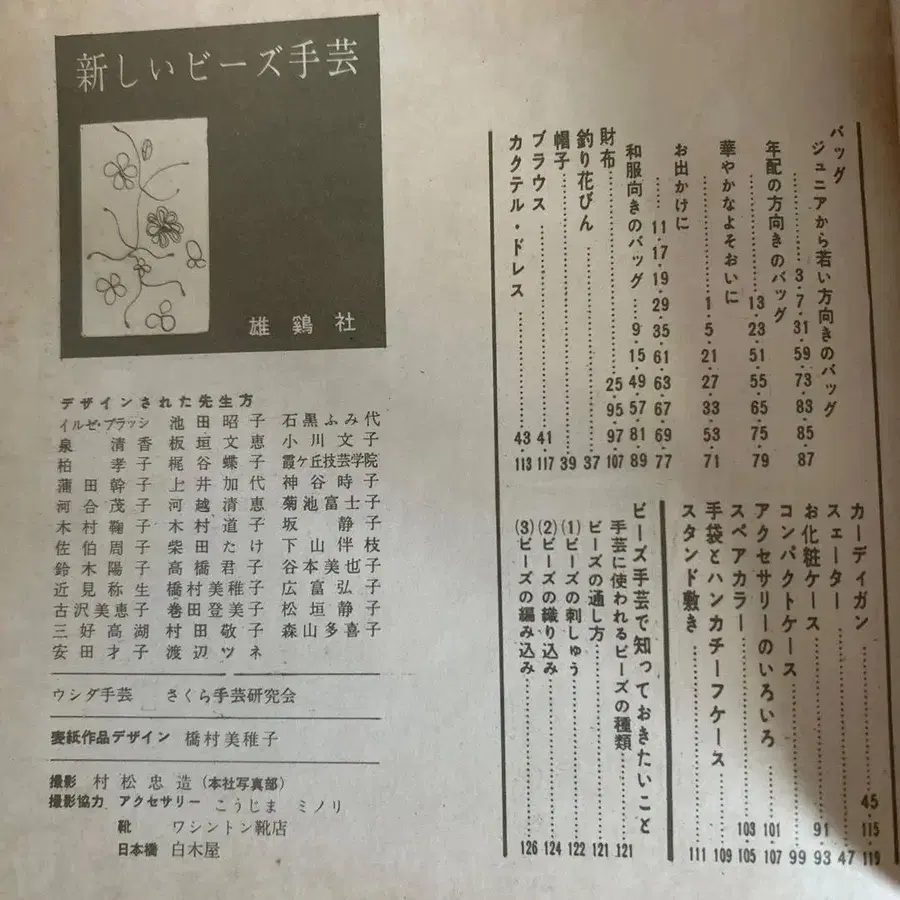 新しいビーズ手芸
雄鶏社
デザインされた先生方
イルゼ・ブラッシ 池田昭子 石黒ふみ代
泉 清香 板垣文恵 小川文子
柏 孝子 梶谷蝶子 霞ケ丘技芸学院
蒲田幹子 上井加代 神谷時子
河合茂子 河越清恵 菊池富士子
木村鞠子 木村道子 坂 静子
佐伯周子 柴田たけ 下山伴枝
鈴木陽子 高橋君子 谷本美也子
近見称生 橋村美稚子 広富弘子
古沢美恵子 巻田登美子 松垣静子
三好高湖 村田敬子 森山多喜子
安田才子 渡辺ツネ
ウシダ手芸 さくら手芸研究会
表紙作品デザイン 橋村美稚子
撮影 村松忠造(本社写真部)
撮影協力 アクセサリー こうじま ミノリ
靴 ワシントン靴店
日本橋 白木屋
バッグ
ジュニアから若い方向きのバッグ
……3・7・31・59・73・83・85・87
年配の方向きのバッグ
……13・23・51・55・65・75・79
華やかなよそおいに
……1・5・21・27・33・53・71
お出かけに
……11・17・19・29・35・61・63・67・69・77
和服向きのバッグ……9・15・49・57・81・89
財布……25・95・97・107
釣り花びん……37
帽子……39
ブラウス……41・117
カクテル・ドレス……43・113
カーディガン……45・115・119
スェーター……47
お化粧ケース……91・93
コンパクトケース……99
アクセサリーのいろいろ……101・107
スペアカラー……103・105
手袋とハンカチーフケース……109
スタンド敷き……111
ビーズ手芸で知っておきたいこと
手芸に使われるビーズの種類……121
ビーズの通し方……121
(1)ビーズの刺しゅう……122
(2)ビーズの織り込み……124
(3)ビーズの編み込み……126